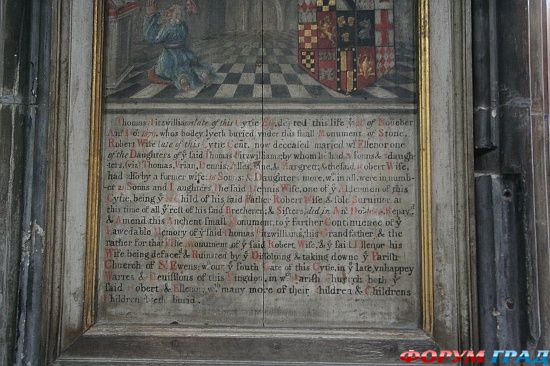 Thomas Fitzwilliams late of this Citie Esq, de{{ted this life ye of Noueber
An o 1579, whos bodey lyeth buried vnder this small Monument of Stone,
Robert Wise late of this Citie Gent, now deceased maried wt Ellenor one
of the Daughters of ye said Thomas Fitzwilliams, by whom he had & sonns & daugh-
ters, (viz) Thomas, Dennis, & Margrett; & the said Robert Wise,
had also by a former wife: Sonns, & Daughters more, wch in all, were in num-
ber Sonns and Daughters. The said Dennis Wise, one of ye Aldermen of this
Citie, being ye Child of his said Father Robert Wise & sole Surviuor at
this time of all ye rest of his said Bretheren, & Sisters, did in Repay
& Amend this Ancient small Monument, to ye further Continuence of ye
Lawdable Memory of ye said Thomas Fitzwilliams, his Grandfather & the
rather for that Monument of ye said Robert Wise, & ye said Ellenor his
Wife being defaced & Ruinated by ye Disolving & taking downe ye Parish
Church of St Ewens, wthout ye South Gate of this Citie, in ye late vnhappey
Warres & Deuissions of this Kingdom, in wch Parish Church both ye
said Robert & Ellenor, wth many more of their Children & Childrens
Children lieth buried.
ФОРУМ ГРАД